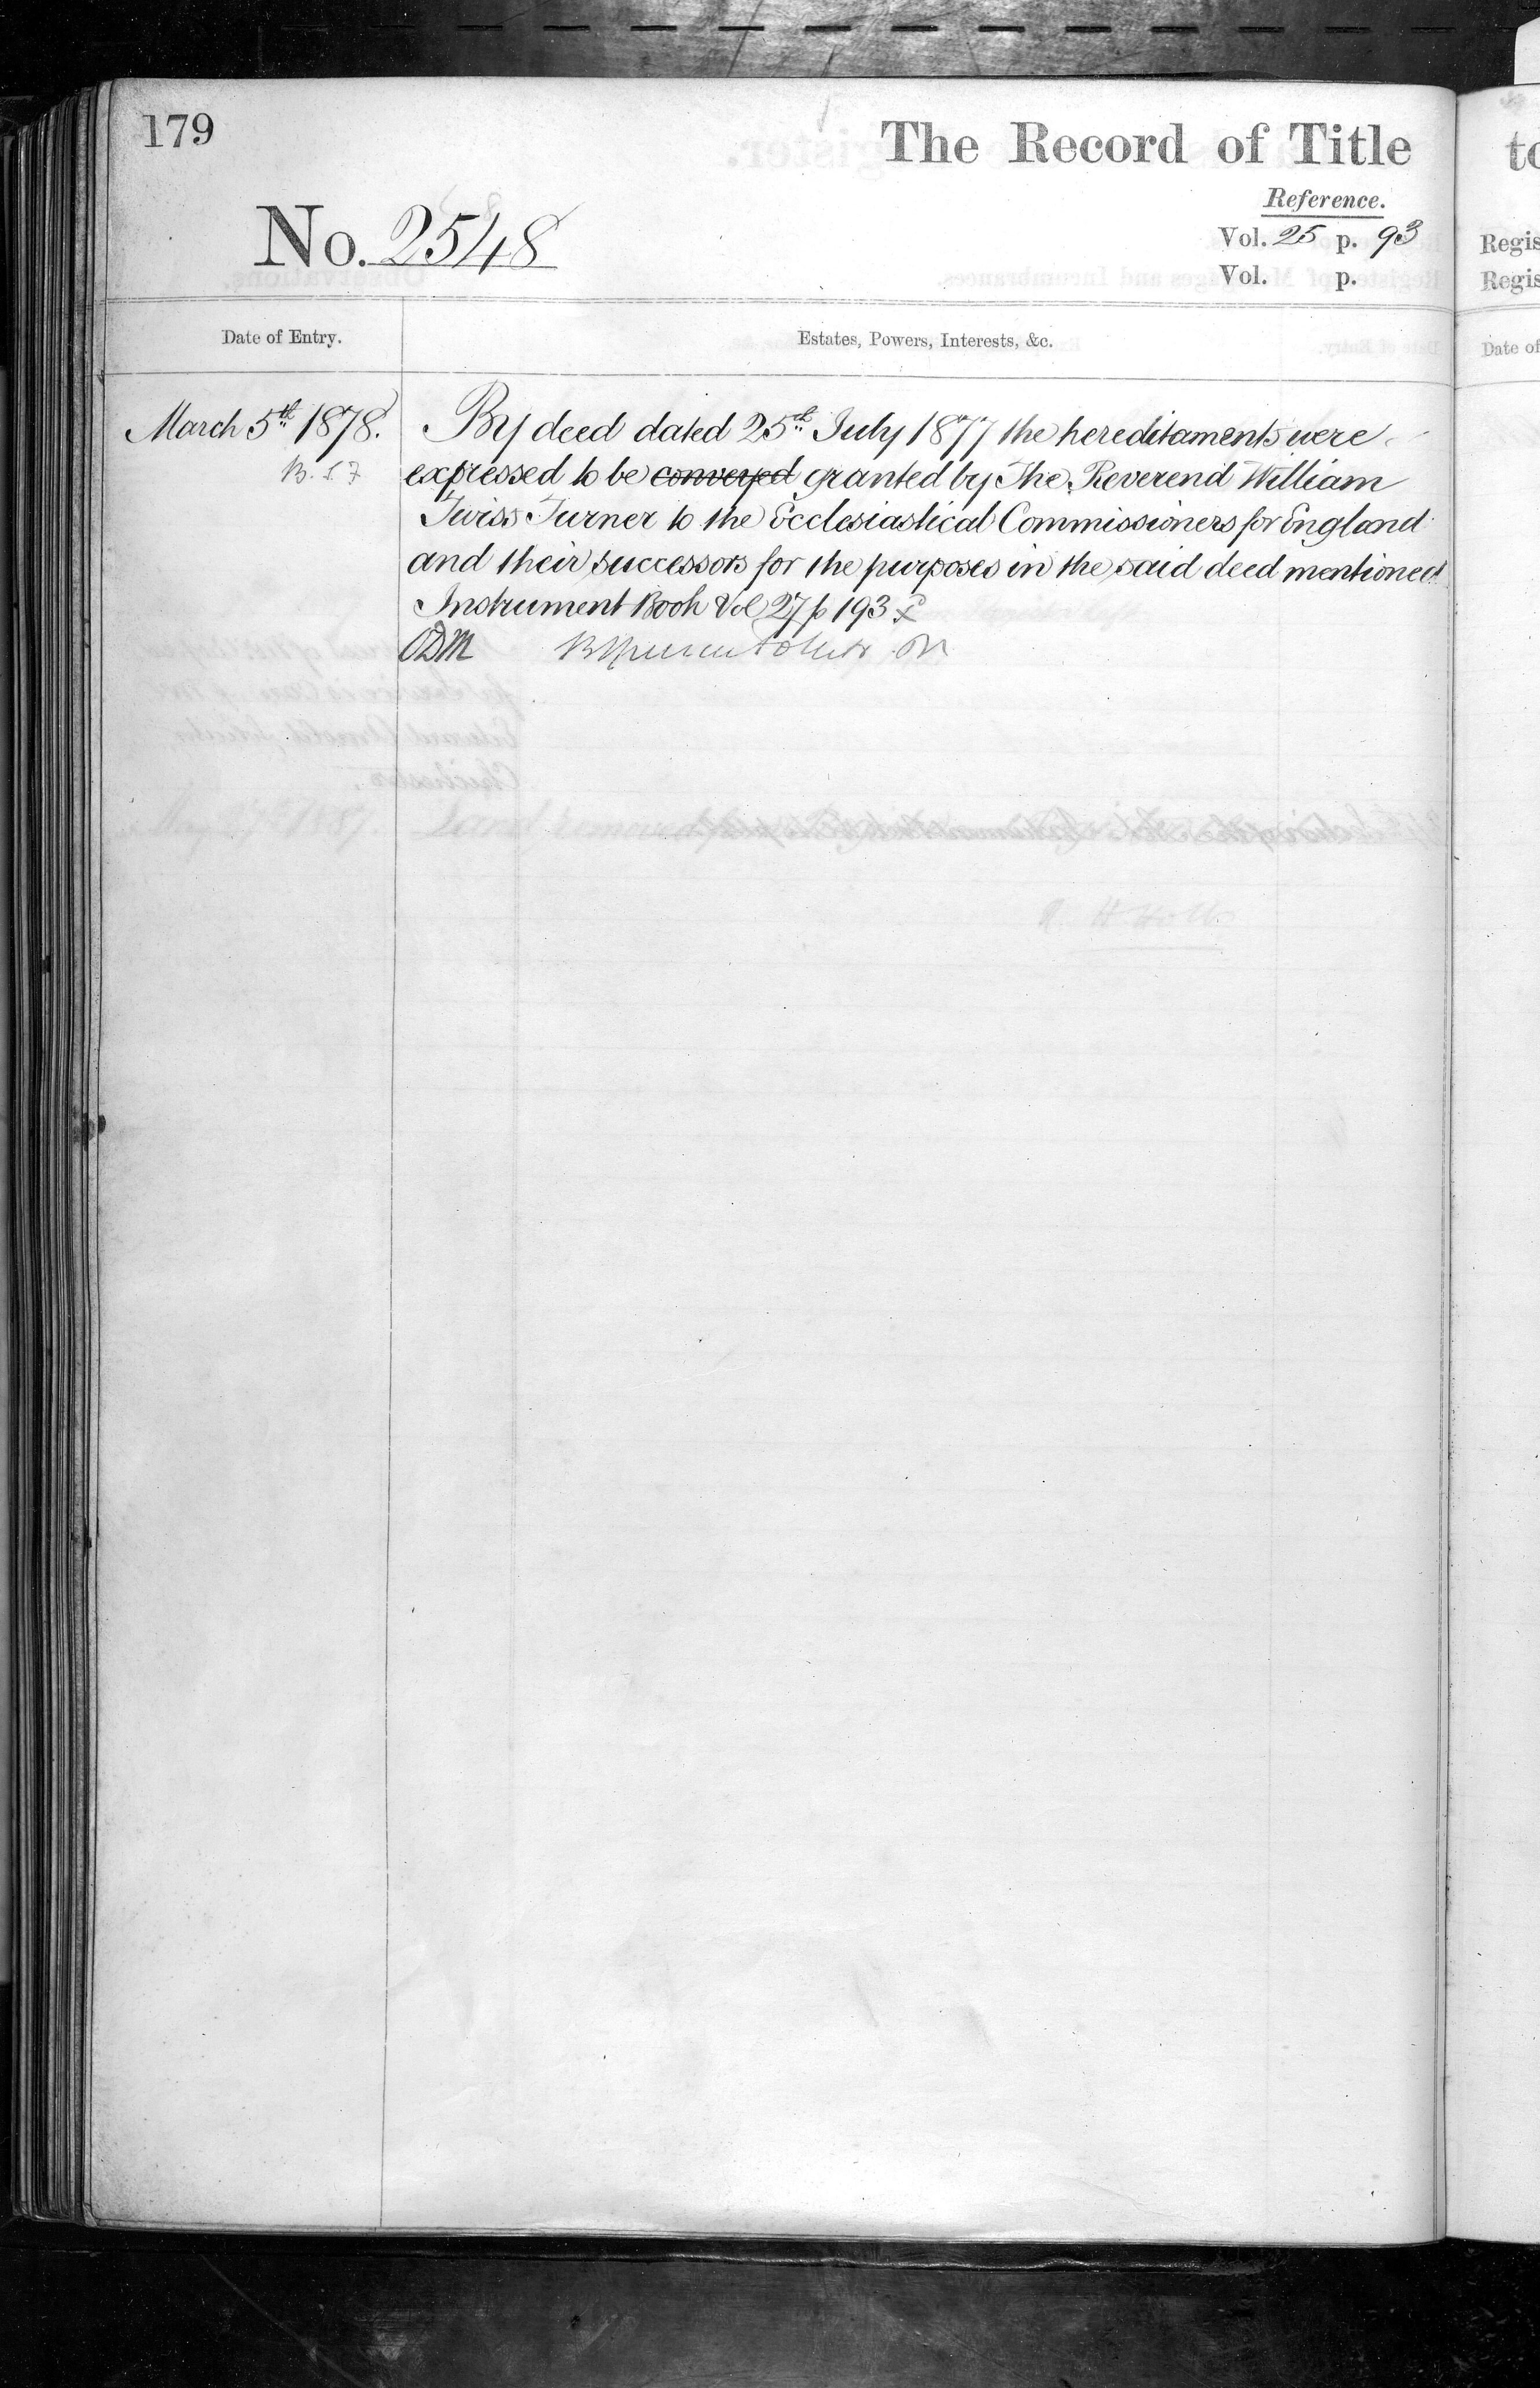 179
The Record of Title
Reference.
No. 2548
Vol. 25 p. 93
Vol. p.
Date of Entry.
Estates, Powers, Interests, &c.
March 5th 1878.
By deed dated 25th July 1877 the hereditaments were
expressed to be conveyed granted by The Reverend William
Twiss Turner to the Ecclesiastical Commissioners for England
and their successors for the purposes in the said deed mentioned
Instrument Book Vol 27 p 193
ODM
to
Regis
Regis
Date of